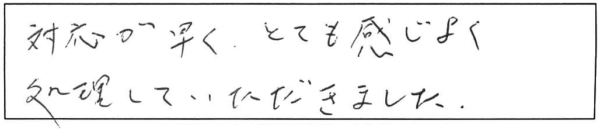 対応が早く、とても感じよく
処理していただきました。